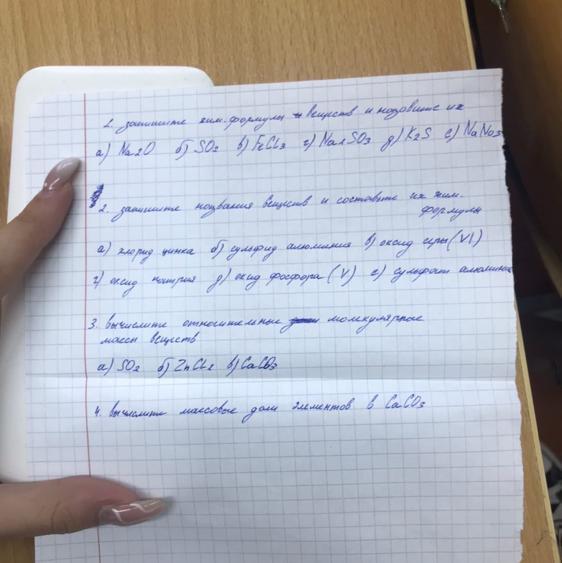 1. запишите хим. формулы веществ и назовите их
а) Na2O б) SO2 в) FeCl3 г) Na2SO3 д) K2S е) NaNO3
2. запишите названия веществ и составьте их хим.
формулы
а) хлорид цинка б) сульфид алюминия в) оксид серы (VI)
г) оксид натрия д) оксид фосфора (V) е) сульфат алюминия
3. вычислите относительные молекулярные
массы веществ
а) SO2 б) ZnCl2 в) CaCO3
4. вычислите массовые доли элементов в CaCO3